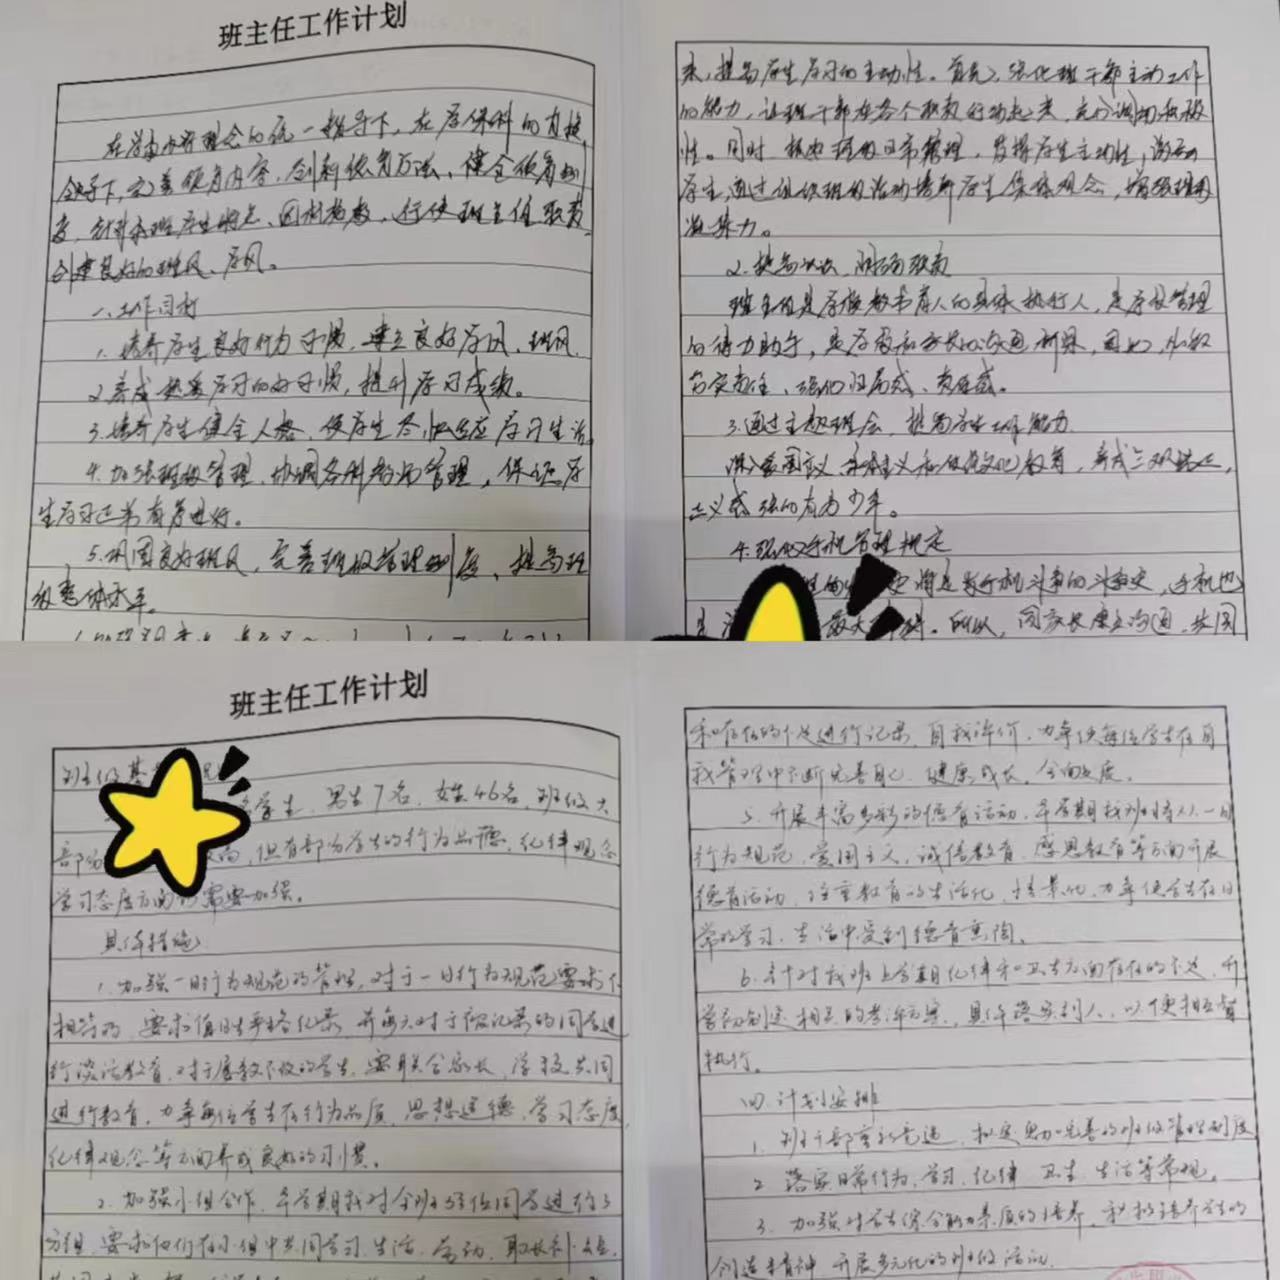 班主任工作计划
在学校办学理念的统一指导下，在学保科的直接
领导下，完善德育内容，创新德育方法、健全德育制
度，针对本班学生特点、因材施教，行使班主任职责
创建良好的班风、学风。
一、工作目标
1、培养学生良好行为习惯，建立良好学风、班风
2、养成热爱学习的好习惯，提升学习成绩。
3、培养学生健全人格、使学生尽快适应学习生活
4、加强班级管理、协调各科教师管理，保证学
生学习正常有序进行。
5、巩固良好班风，完善班级管理制度、提高班
级整体水平。
来，提高学生学习的主动性。首先，强化班干部主动工作
的能力，让班干部在各个职责行动起来，充分调动积极
性。同时 班级日常管理，发挥学生主动性，激励
学生，通过组织班级活动培养学生集体观念，增强班级
凝集力。
2、提高认识，明确职责
班主任是学校教书育人的具体执行人，是学校管理
的得力助手，是学校和家长的沟通桥梁，因此，
责任、强化归属感、责任感。
3、通过主题班会，提高学生 能力
深入爱国主义、集体主义和传统文化教育，养成三观端正，
正义感强的有为少年。
4、强化手机管理规定
是与手机斗争的斗争史，手机也
最大 。所以，同家长建立沟通，共同
班主任工作计划
班级基
名学生，男生7名，女生46名，班级大
部分 ，但有部分学生的行为品德，纪律观念
学习态度方面仍需要加强。
具体措施
1、加强一日行为规范的管理，对于一日行为规范要求不
相符的，要求值日生严格纪录，并每天对于被记录的同学进
行谈话教育，对于屡教不改的学生，要联合家长，学校共同
进行教育，力争每位学生在行为品质、思想道德、学习态度
纪律观念等方面养成良好的习惯。
2、加强小组合作，本学期我对全班53位同学进行了
分组，要求他们在小组中共同学习、生活、劳动，取长补短，
和存在的不足进行记录，自我评价，力争使每位学生在自
我管理中不断完善自己，健康成长，全面发展。
5、开展丰富多彩的德育活动，本学期我班将从一日
行为规范，爱国主义，诚信教育，感恩教育等方面开展
德育活动，注重教育的生活化，情景化，力争使学生在日
常的学习、生活中受到德育熏陶。
6、针对我班上学期纪律和卫生方面存在的不足，开
学初制定相关的考评方案，具体落实到人，以便相互督
执行。
四、计划安排
1、班干部重新竞选，拟定更加完善的班级管理制度
2、落实日常行为、学习、纪律、卫生、生活等常规。
3、加强对学生综合能力素质的培养，积极培养学生的
创造精神，开展多元化的班级活动